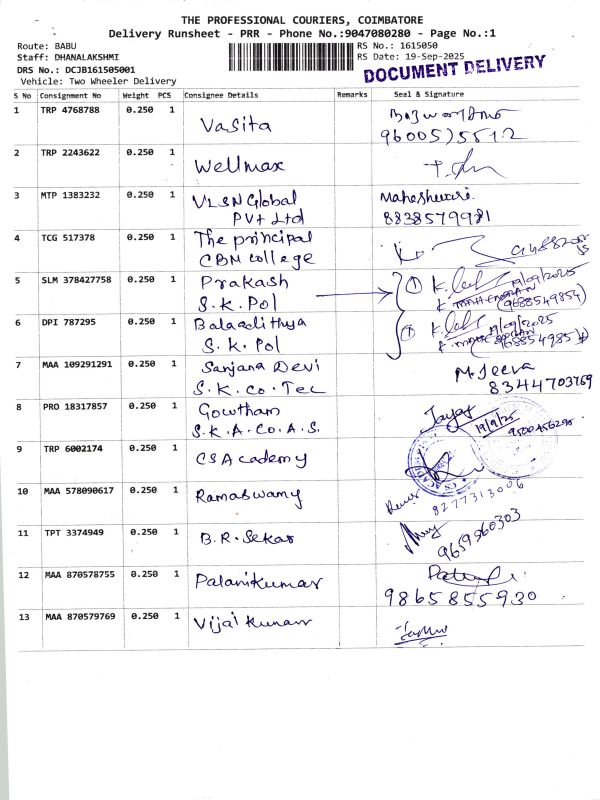 THE PROFESSIONAL COURIERS, COIMBATORE
Delivery Runsheet - PRR - Phone No.:9047080280 - Page No.:1
Route: BABU
Staff: DHANALAKSHMI
DRS No.: DCJB161505001
Vehicle: Two Wheeler Delivery
RS No.: 1615050
RS Date: 19-Sep-2025
DOCUMENT DELIVERY
S No Consignment No Weight PCS Consignee Details Remarks Seal & Signature
1 TRP 4768788 0.250 1 Vasita
2 TRP 2243622 0.250 1 Wellmax
3 MTP 1383232 0.250 1 VLSN Global Maheshwari
PVt Ltd 8838579981
4 TCG 517378 0.250 1 The principal
CBM College
5 SLM 378427758 0.250 1 Prakash ① 19/09/2025
S.K.Pol (9688549854)
6 DPI 787295 0.250 1 Balaadithya 19/09/2025
S.K.Pol
7 MAA 109291291 0.250 1 Sanjana Devi M.Jeeva
S.K.Co.Tec 8344703769
8 PRO 18317857 0.250 1 Gowtham 19/9/25
S.K.A.Co.A.S.
9 TRP 6002174 0.250 1 CS Academy
10 MAA 578090617 0.250 1 Ramaswamy
8277313006
11 TPT 3374949 0.250 1 B.R.Sekar
9659560303
12 MAA 870578755 0.250 1 Palanikumar
9865855930
13 MAA 870579769 0.250 1 Vijai Kumar